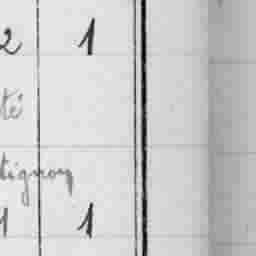 2 1
té
tignon
1 1